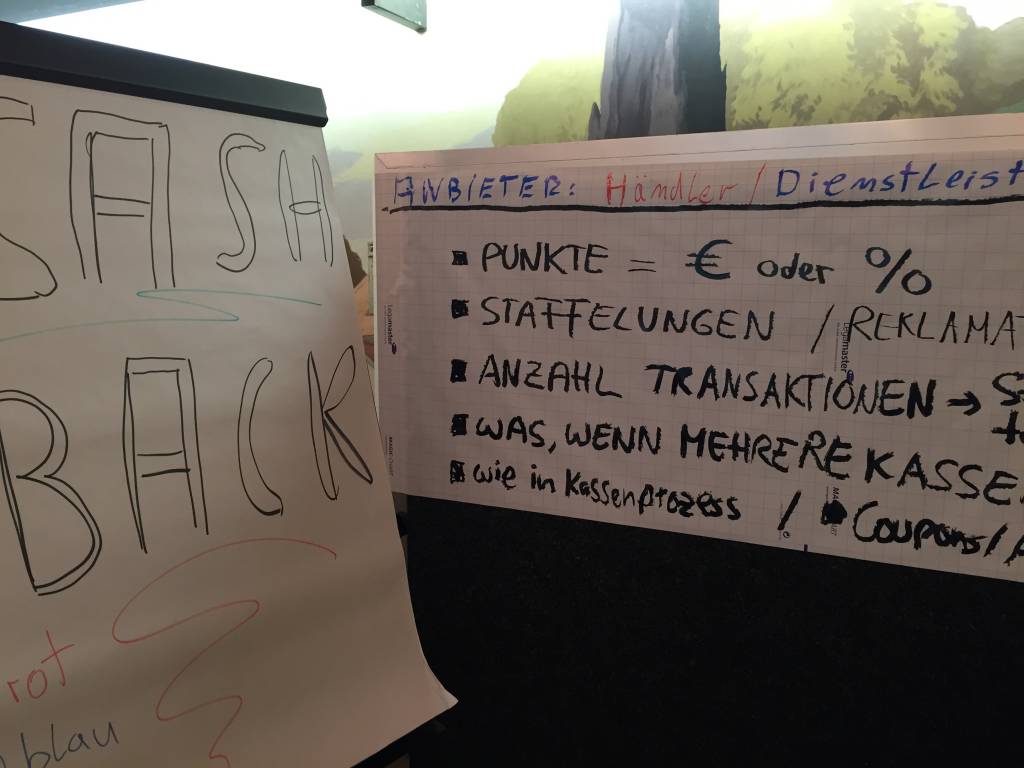 CASH
BACK
rot
blau
ANBIETER: Händler / Dienstleist
▪ PUNKTE = € oder %
▪ STAFFELUNGEN / REKLAMAT
▪ ANZAHL TRANSAKTIONEN →
▪ WAS, WENN MEHRERE KASSE
▪ wie in Kassenprozess / Coupons /
Legamaster
Legamaster